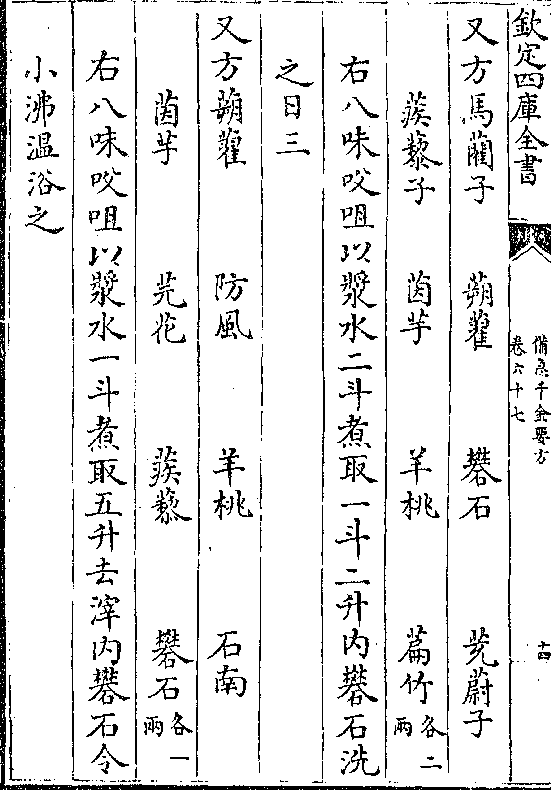 欽定四庫全書
備急千金要方
卷六十七
十四
又方馬藺子 蒴藋 礬石 茺蔚子
蒺藜子 茵芋 羊桃 萹竹各二兩
右八味㕮咀以漿水二斗煮取一斗二升内礬石洗
之日三
又方蒴藋 防風 羊桃 石南
茵芋 芫花 蒺藜 礬石各一兩
右八味㕮咀以漿水一斗煮取五升去滓内礬石令
小沸温浴之